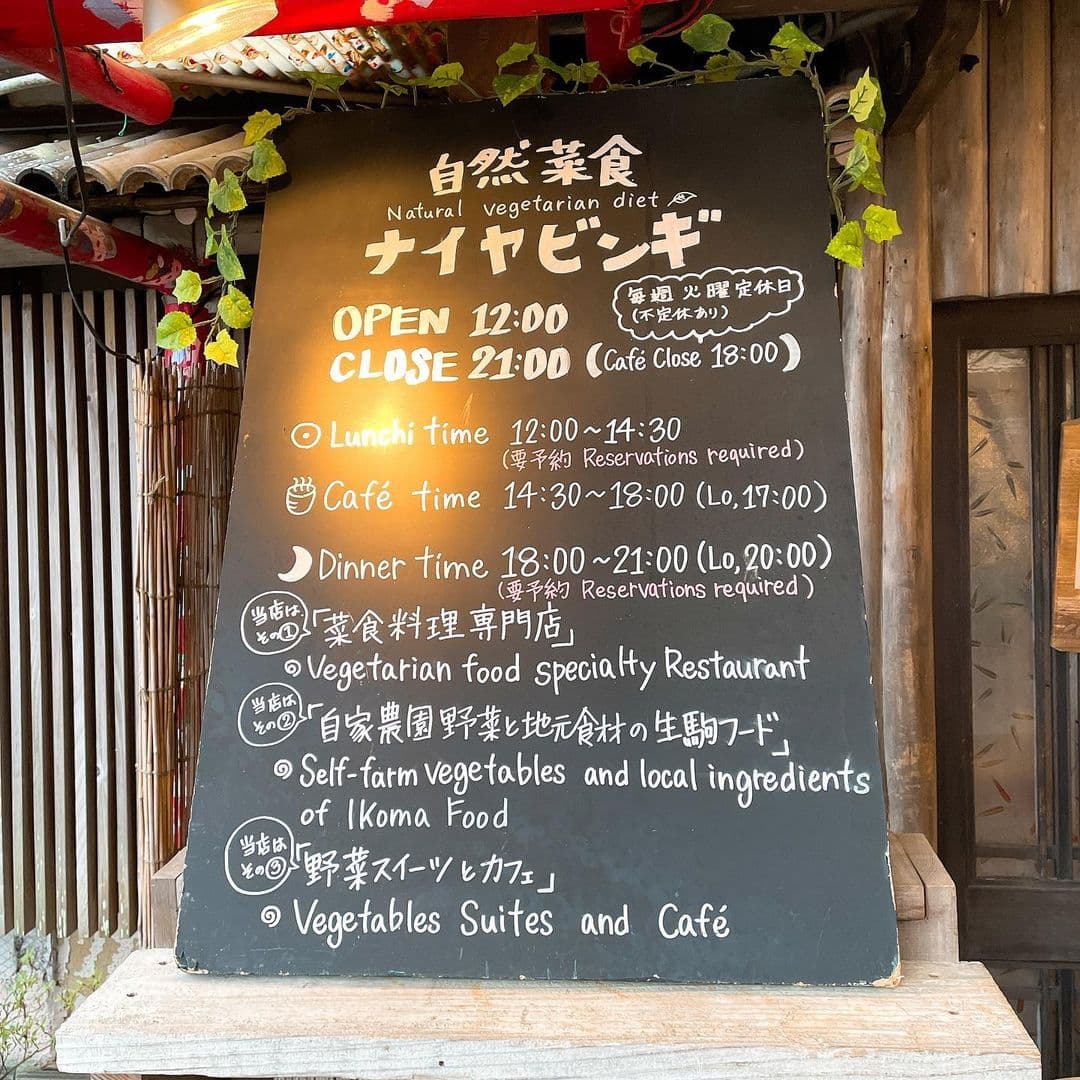 自然菜食
Natural vegetarian diet
ナイヤビンギ
毎週火曜定休日
(不定休あり)
OPEN 12:00
CLOSE 21:00 (Café Close 18:00)
Lunchi time 12:00~14:30
(要予約 Reservations required)
Café time 14:30~18:00 (Lo,17:00)
Dinner time 18:00~21:00 (Lo,20:00)
(要予約 Reservations required)
当店は
その① 「菜食料理専門店」
Vegetarian food specialty Restaurant
当店は
その② 「自家農園野菜と地元食材の生駒フード」
Self-farm vegetables and local ingredients
of Ikoma Food
当店は
その③ 「野菜スイーツとカフェ」
Vegetables Suites and Café